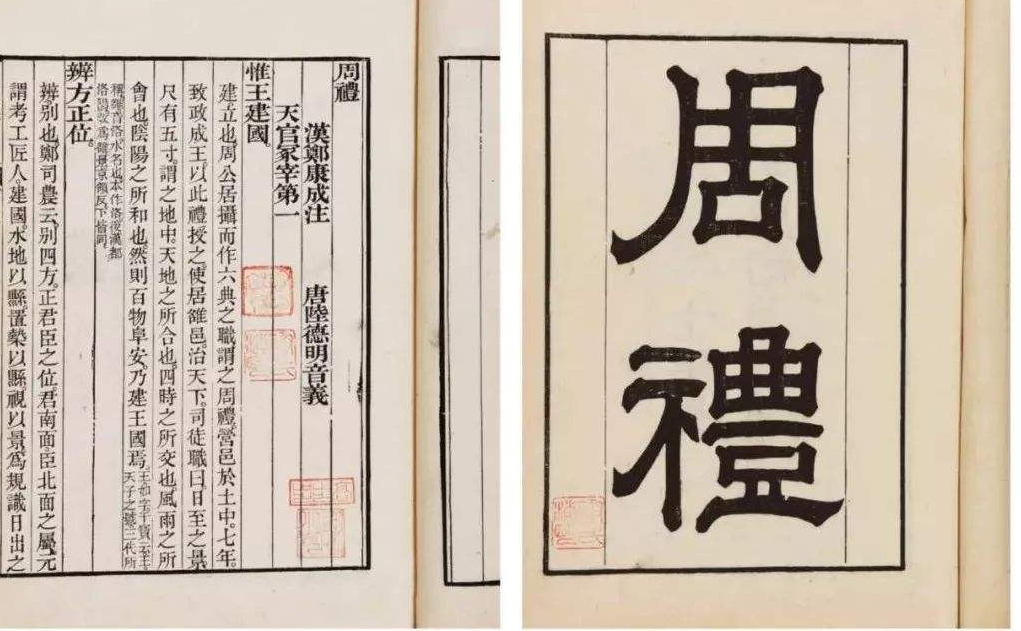 周禮
周禮
漢鄭康成注　唐陸德明音義
天官冢宰第一
惟王建國。
建立也。周公居攝而作六典之職。謂之周禮。營邑於土中。七年。
致政成王。以此禮授之。使居雒邑。治天下。司徒職曰。日至之景。
尺有五寸。謂之地中。天地之所合也。四時之所交也。風雨之所
會也。陰陽之所和也。然則百物阜安。乃建王國焉。王如字。干寶云。王
天子之號。三代所
稱。雒音洛。水名也。本作洛。後漢都
洛陽。改爲雒。景京領反。下皆同。
辨方正位。
辨。別也。鄭司農云。別四方。正君臣之位。君南面。臣北面之屬。元
謂考工。匠人建國。水地以縣。置槷以縣。視以景。爲規。識日出之